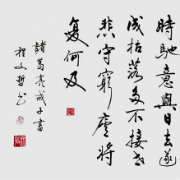 時馳意與日去遂
成枯落多不接世
悲守窮廬將
復何及
諸葛亮誡子書